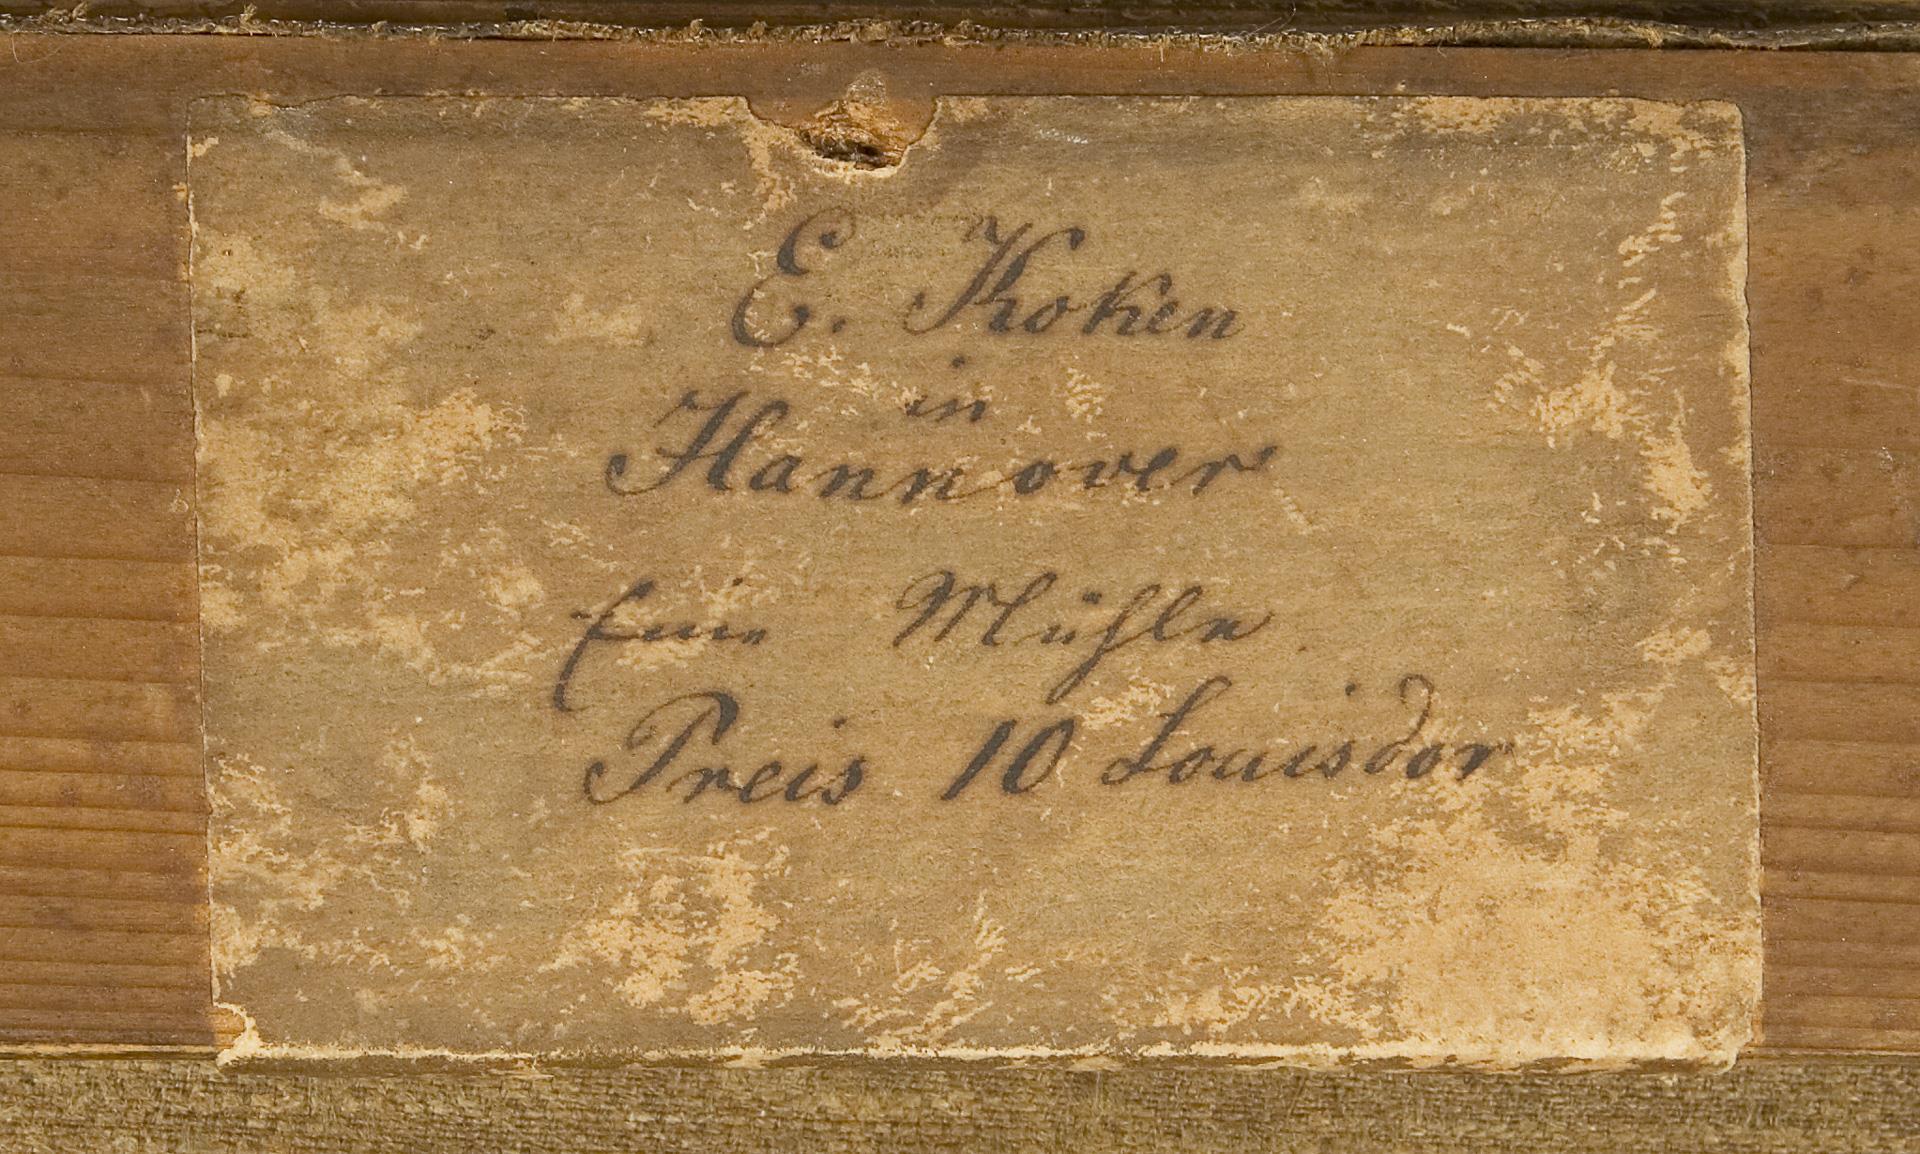 E. Koken
in
Hannover
Eine Mühle
Preis 10 Louisdor